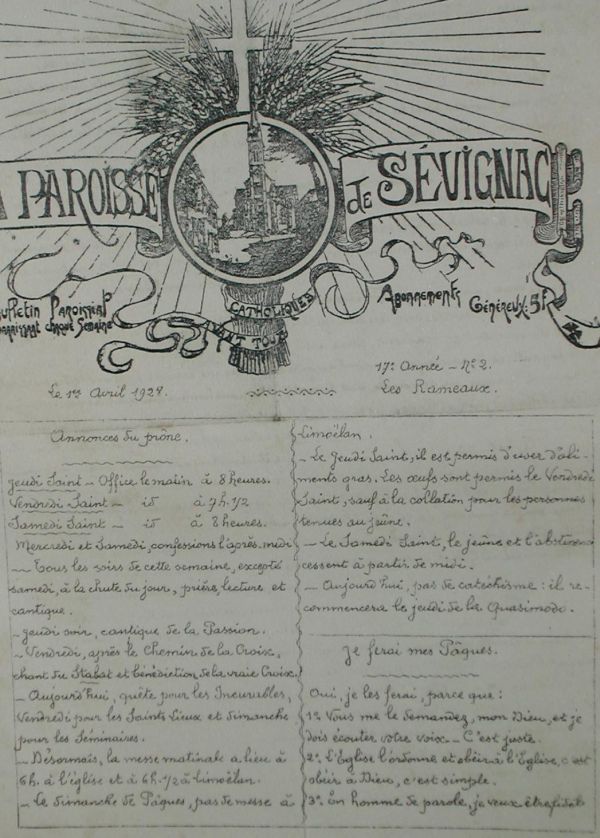 PAROISSE de SÉVIGNAC
Bulletin Paroissial
paraissant chaque Semaine
CATHOLIQUES
AVANT TOUT
Abonnements Généreux: 5F
Le 1er Avril 1928.
17e Année - No 2.
Les Rameaux.
Annonces du prône.
Jeudi Saint - Office le matin à 8 heures.
Vendredi Saint - id à 7h.1/2
Samedi Saint - id à 8 heures.
Mercredi et Samedi, confessions l'après-midi
- Tous les soirs de cette semaine, excepté
samedi, à la chute du jour, prière, lecture et
cantique.
- Jeudi soir, cantique de la Passion.
- Vendredi, après le Chemin de la Croix,
chant du Stabat et bénédiction de la vraie Croix.
- Aujourd'hui, quête pour les Incurables,
Vendredi pour les Saints Lieux et dimanche
pour les Séminaires.
- Désormais, la messe matinale a lieu à
6h. à l'église et à 6h.1/2 à Limoëlan.
- Le dimanche de Pâques, pas de messe à
Limoëlan.
- Le Jeudi Saint, il est permis d'user d'ali-
ments gras. Les œufs sont permis le Vendredi
Saint, sauf à la collation pour les personnes
tenues au jeûne.
- Le Samedi Saint, le jeûne et l'abstinence
cessent à partir de midi.
- Aujourd'hui, pas de catéchisme: il re-
commencera le jeudi de la Quasimodo.
Je ferai mes Pâques.
Oui, je les ferai, parce que:
1o Vous me le demandez, mon Dieu, et je
dois écouter votre voix. - C'est juste.
2o L'Église l'ordonne et obéir à l'Église, c'est
obéir à Dieu, c'est simple.
3o En homme de parole, je veux être fidèle